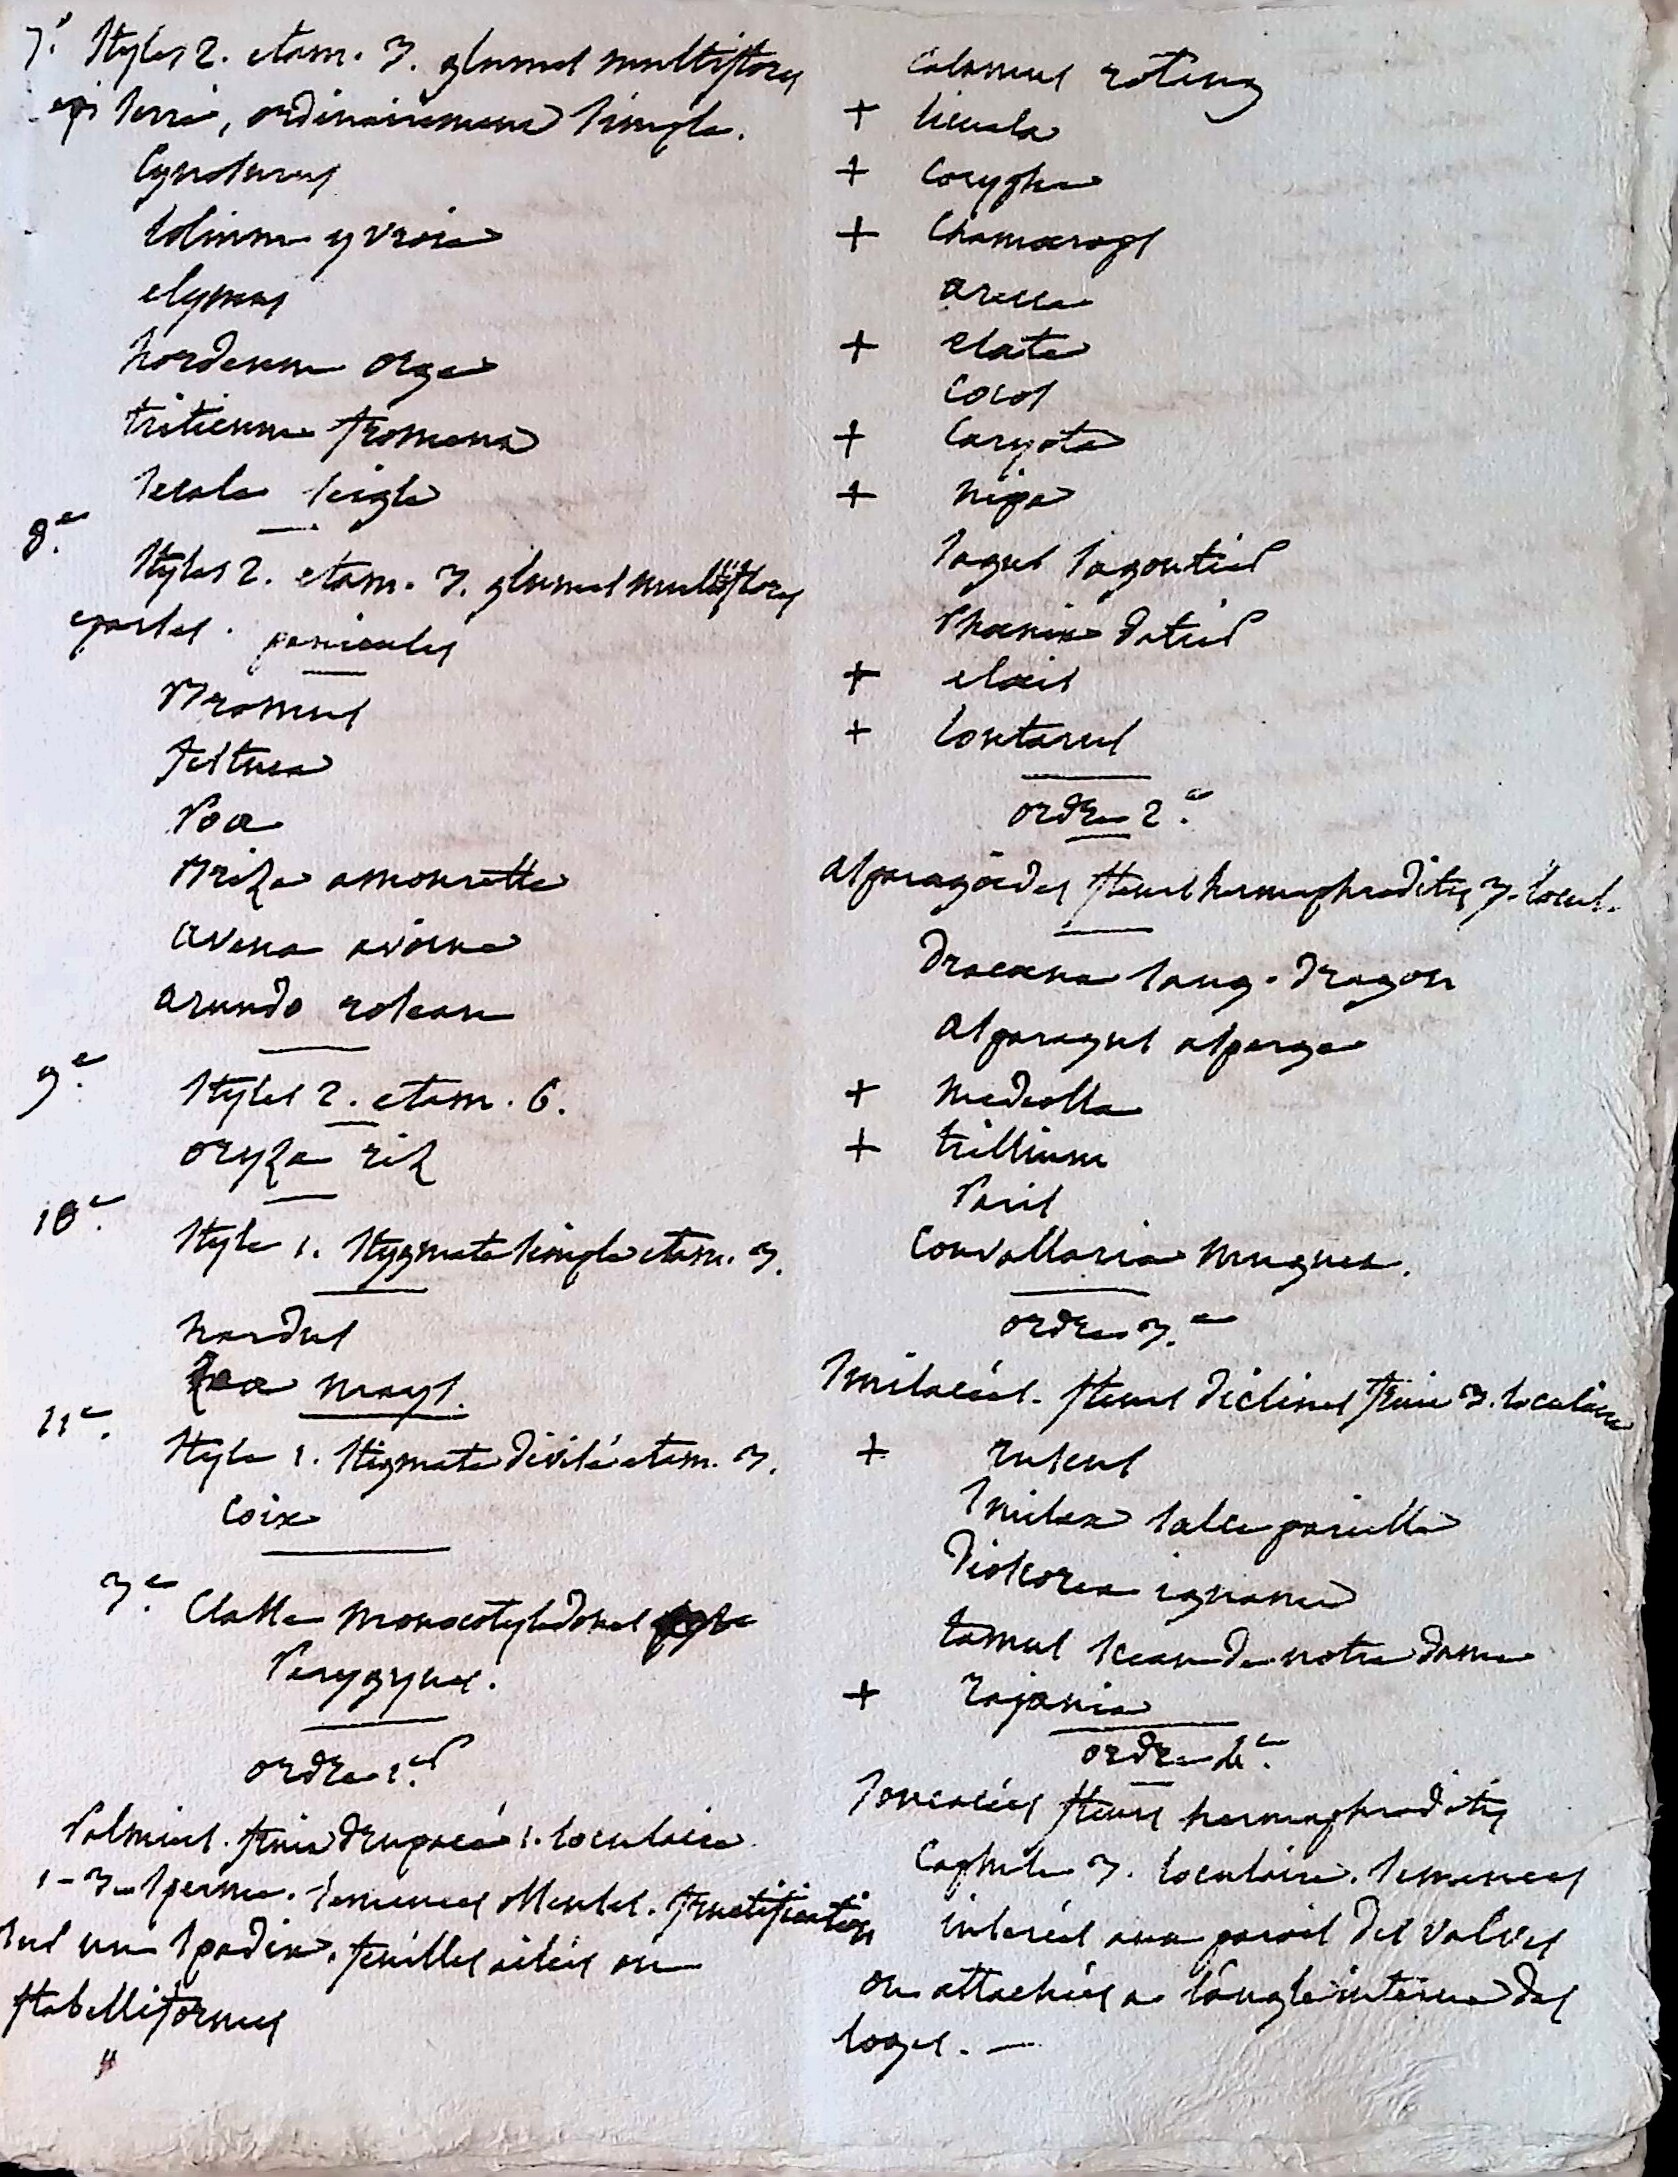 7.e Styles 2. etam. 3. glumes multiflores
epi serré, ordinairement simple.
Cynosurus
lolium yvroie
elymus
hordeum orge
triticum froment
secale seigle
8.e
Styles 2. etam. 3. glumes multiflores
eparses. panicules
Bromus
festuca
Poa
Briza amourette
avena avoine
arundo roseau
9.e
Styles 2. etam. 6.
oryza riz
10.e
Style 1. Stygmate simple etam. 3.
nardus
Zea mays.
11.e
Style 1. Stigmate divisé etam. 3.
Coix
3.e Classe Monocotyledones
Perygynes.
ordre 1.er
Palmiers. fruit drupacé 1. loculaire
1-3 sperme. semences osseuses. fructification
sur un spadix. feuilles ailées ou
flabelliformes
"
Calamus rotang
+ licuala
+ Corypha
+ Chamaerops
areca
+ elate
Cocos
+ Caryota
+ nipa
Sagus sagoutier
Phoenix datier
+ elaeis
+ lontarus
ordre 2.e
asparagoides fleurs hermaphrodites 3. locul.
Dracaena sang-dragon
asparagus asperge
+ Medeolla
+ trillium
Paris
Convallaria muguet.
ordre 3.e
Smilacées. fleurs diclines fruit 3. loculaire
+ ruscus
Smilax salsepareille
Dioscorea igname
tamus sceau de notre dame
+ rajania
ordre 4.e
Joncacées fleurs hermaphrodites
Capsule 3. loculaire. semences
inserées aux parois des valves
ou attachées a l'angle interne des
loges. —